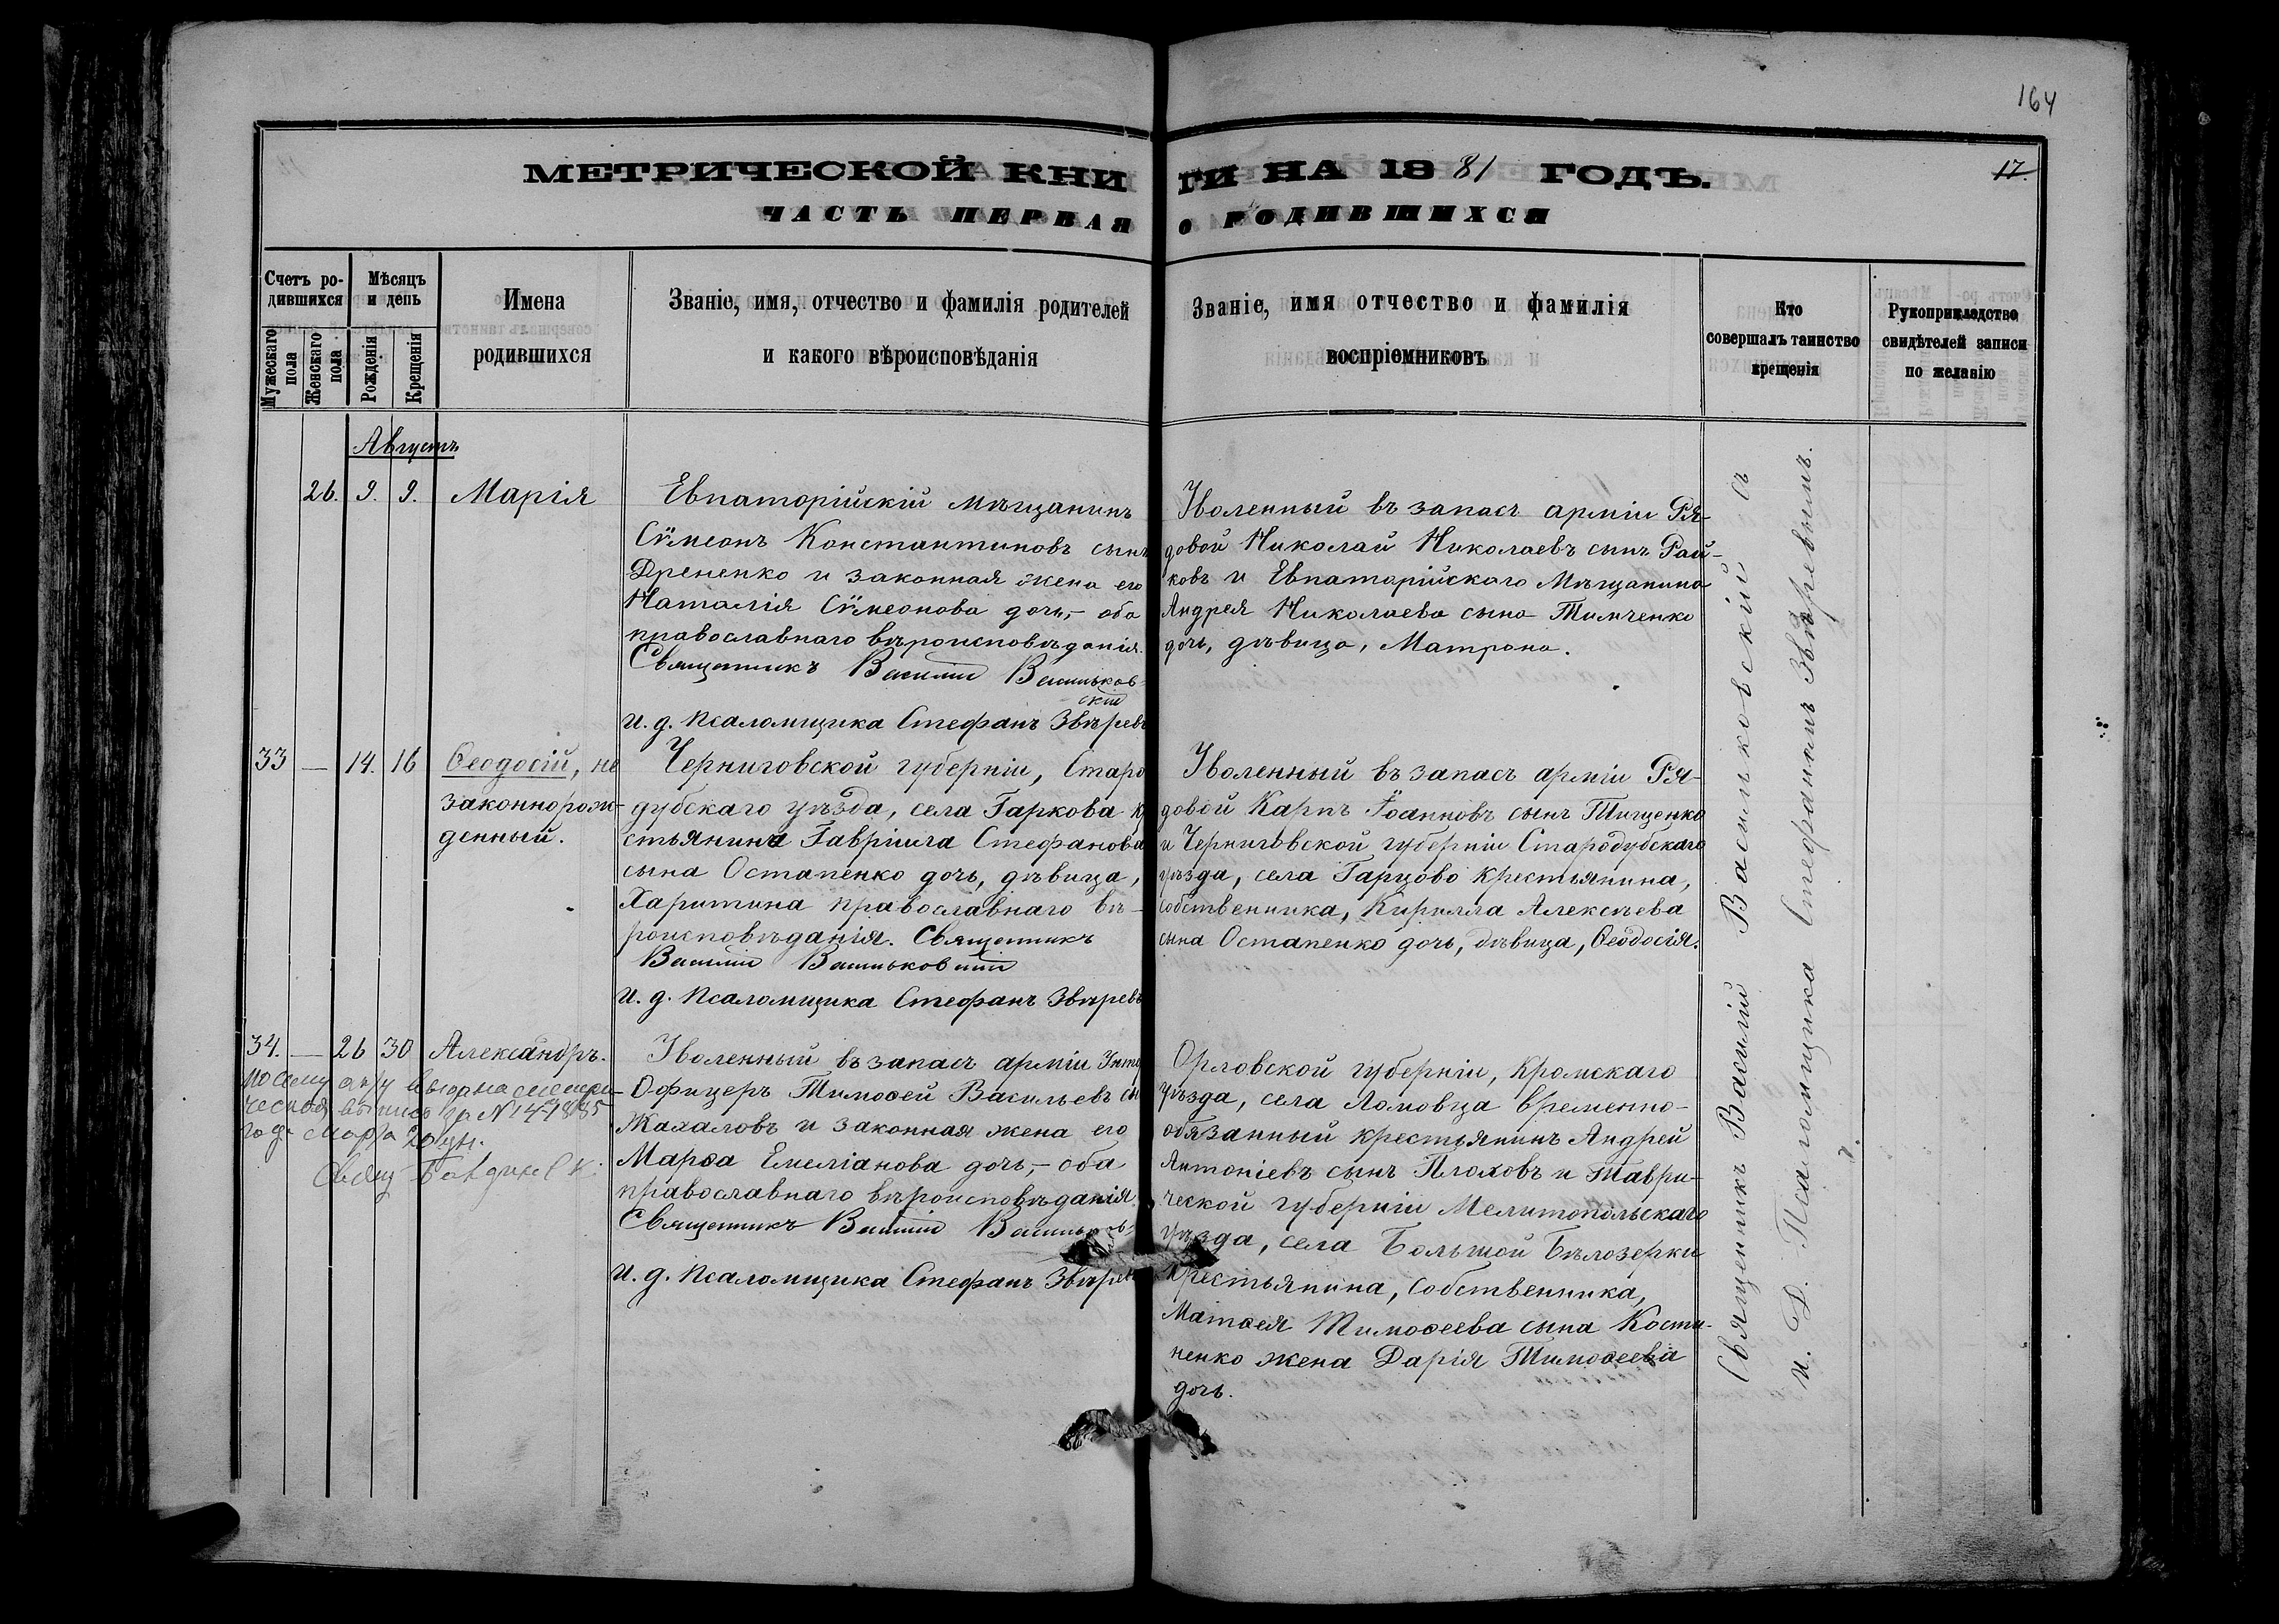 164
МЕТРИЧЕСКОЙ КНИГИ НА 1881 ГОДЪ.
17.
ЧАСТЬ ПЕРВАЯ О РОДИВШИХСЯ
Счетъ ро-
дившихся
Мужескаго пола
Женскаго пола
Мѣсяцъ
и день
Рожденія
Крещенія
Имена
родившихся
Званіе, имя, отчество и фамилія родителей
и какого вѣроисповѣданія
Званіе, имя отчество и фамилія
воспріемниковъ
Кто
совершалъ таинство
крещенія
Рукоприкладство
свидѣтелей записи
по желанію
Августъ
26. 9. 9. Марія
Евпаторійскій мѣщанинъ
Сѵмеонъ Константиновъ сынъ
Дрененко и законная жена его
Наталія Сѵмеонова дочь,- оба
православнаго вѣроисповѣданія.
Священникъ Василій Васильков-
скій
и. д. Псаломщика Стефанъ Звѣревъ
Уволенный въ запасъ арміи Ря-
довой Николай Николаевъ сынъ Рай-
ковъ и Евпаторійскаго Мѣщанина
Андрея Николаева сына Тимченко
дочь, дѣвица, Матрона.
33 — 14. 16 Ѳеодосій, не
законнорож-
денный.
Черниговской губерніи, Старо
дубскаго уѣзда, села Гаркова к
стьянина Гавріила Стефанова
сына Остапенко дочь, дѣвица,
Харитина православнаго вѣ-
роисповѣданія. Священникъ
Василій Васильковскій
и. д. Псаломщика Стефанъ Звѣревъ
Уволенный въ запасъ арміи Ря-
довой Карпъ Іоанновъ сынъ Тищенко
и Черниговской губерніи Стародубскаго
уѣзда, села Гарцово крестьянина,
собственника, Кирилла Алексѣева
сына Остапенко дочь, дѣвица, Ѳеодосія.
34. — 26 30 Александръ.
По сему акту выдана метри-
ческая выпись за № 14 1885
года Марта 20 дн.
Свящ.
Уволенный въ запасъ арміи Унте
Офицеръ Тимоѳей Васильевъ сы
Жахаловъ и законная жена его
Марѳа Емеліанова дочь,- оба
православнаго вѣроисповѣданія.
Священникъ Василій Васильков-
и. д. Псаломщика Стефанъ Звѣревъ
Орловской губерніи, Кромскаго
уѣзда, села Ломовца временно-
обязанный крестьянинъ Андрей
Антоніевъ сынъ Плоховъ и Таври-
ческой губерніи Мелитопольскаго
уѣзда, села Большой Бѣлозерки
крестьянина, собственника,
Матѳея Тимоѳеева сына Кости-
ненко жена Дарія Тимоѳеева
дочь.
Священникъ Василій Васильковскій съ
и. д. Псаломщика Стефаномъ Звѣревымъ.